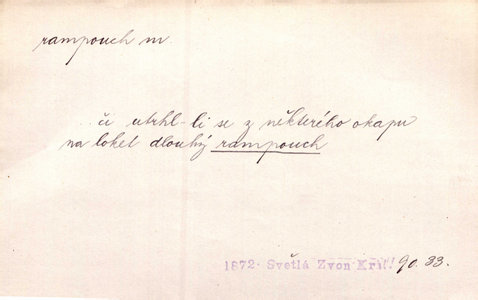 rampouch m.
.. či utrhl-li se z některého okapu
na loket dlouhý rampouch
1872. Světlá Zvon Král. 90. 33.